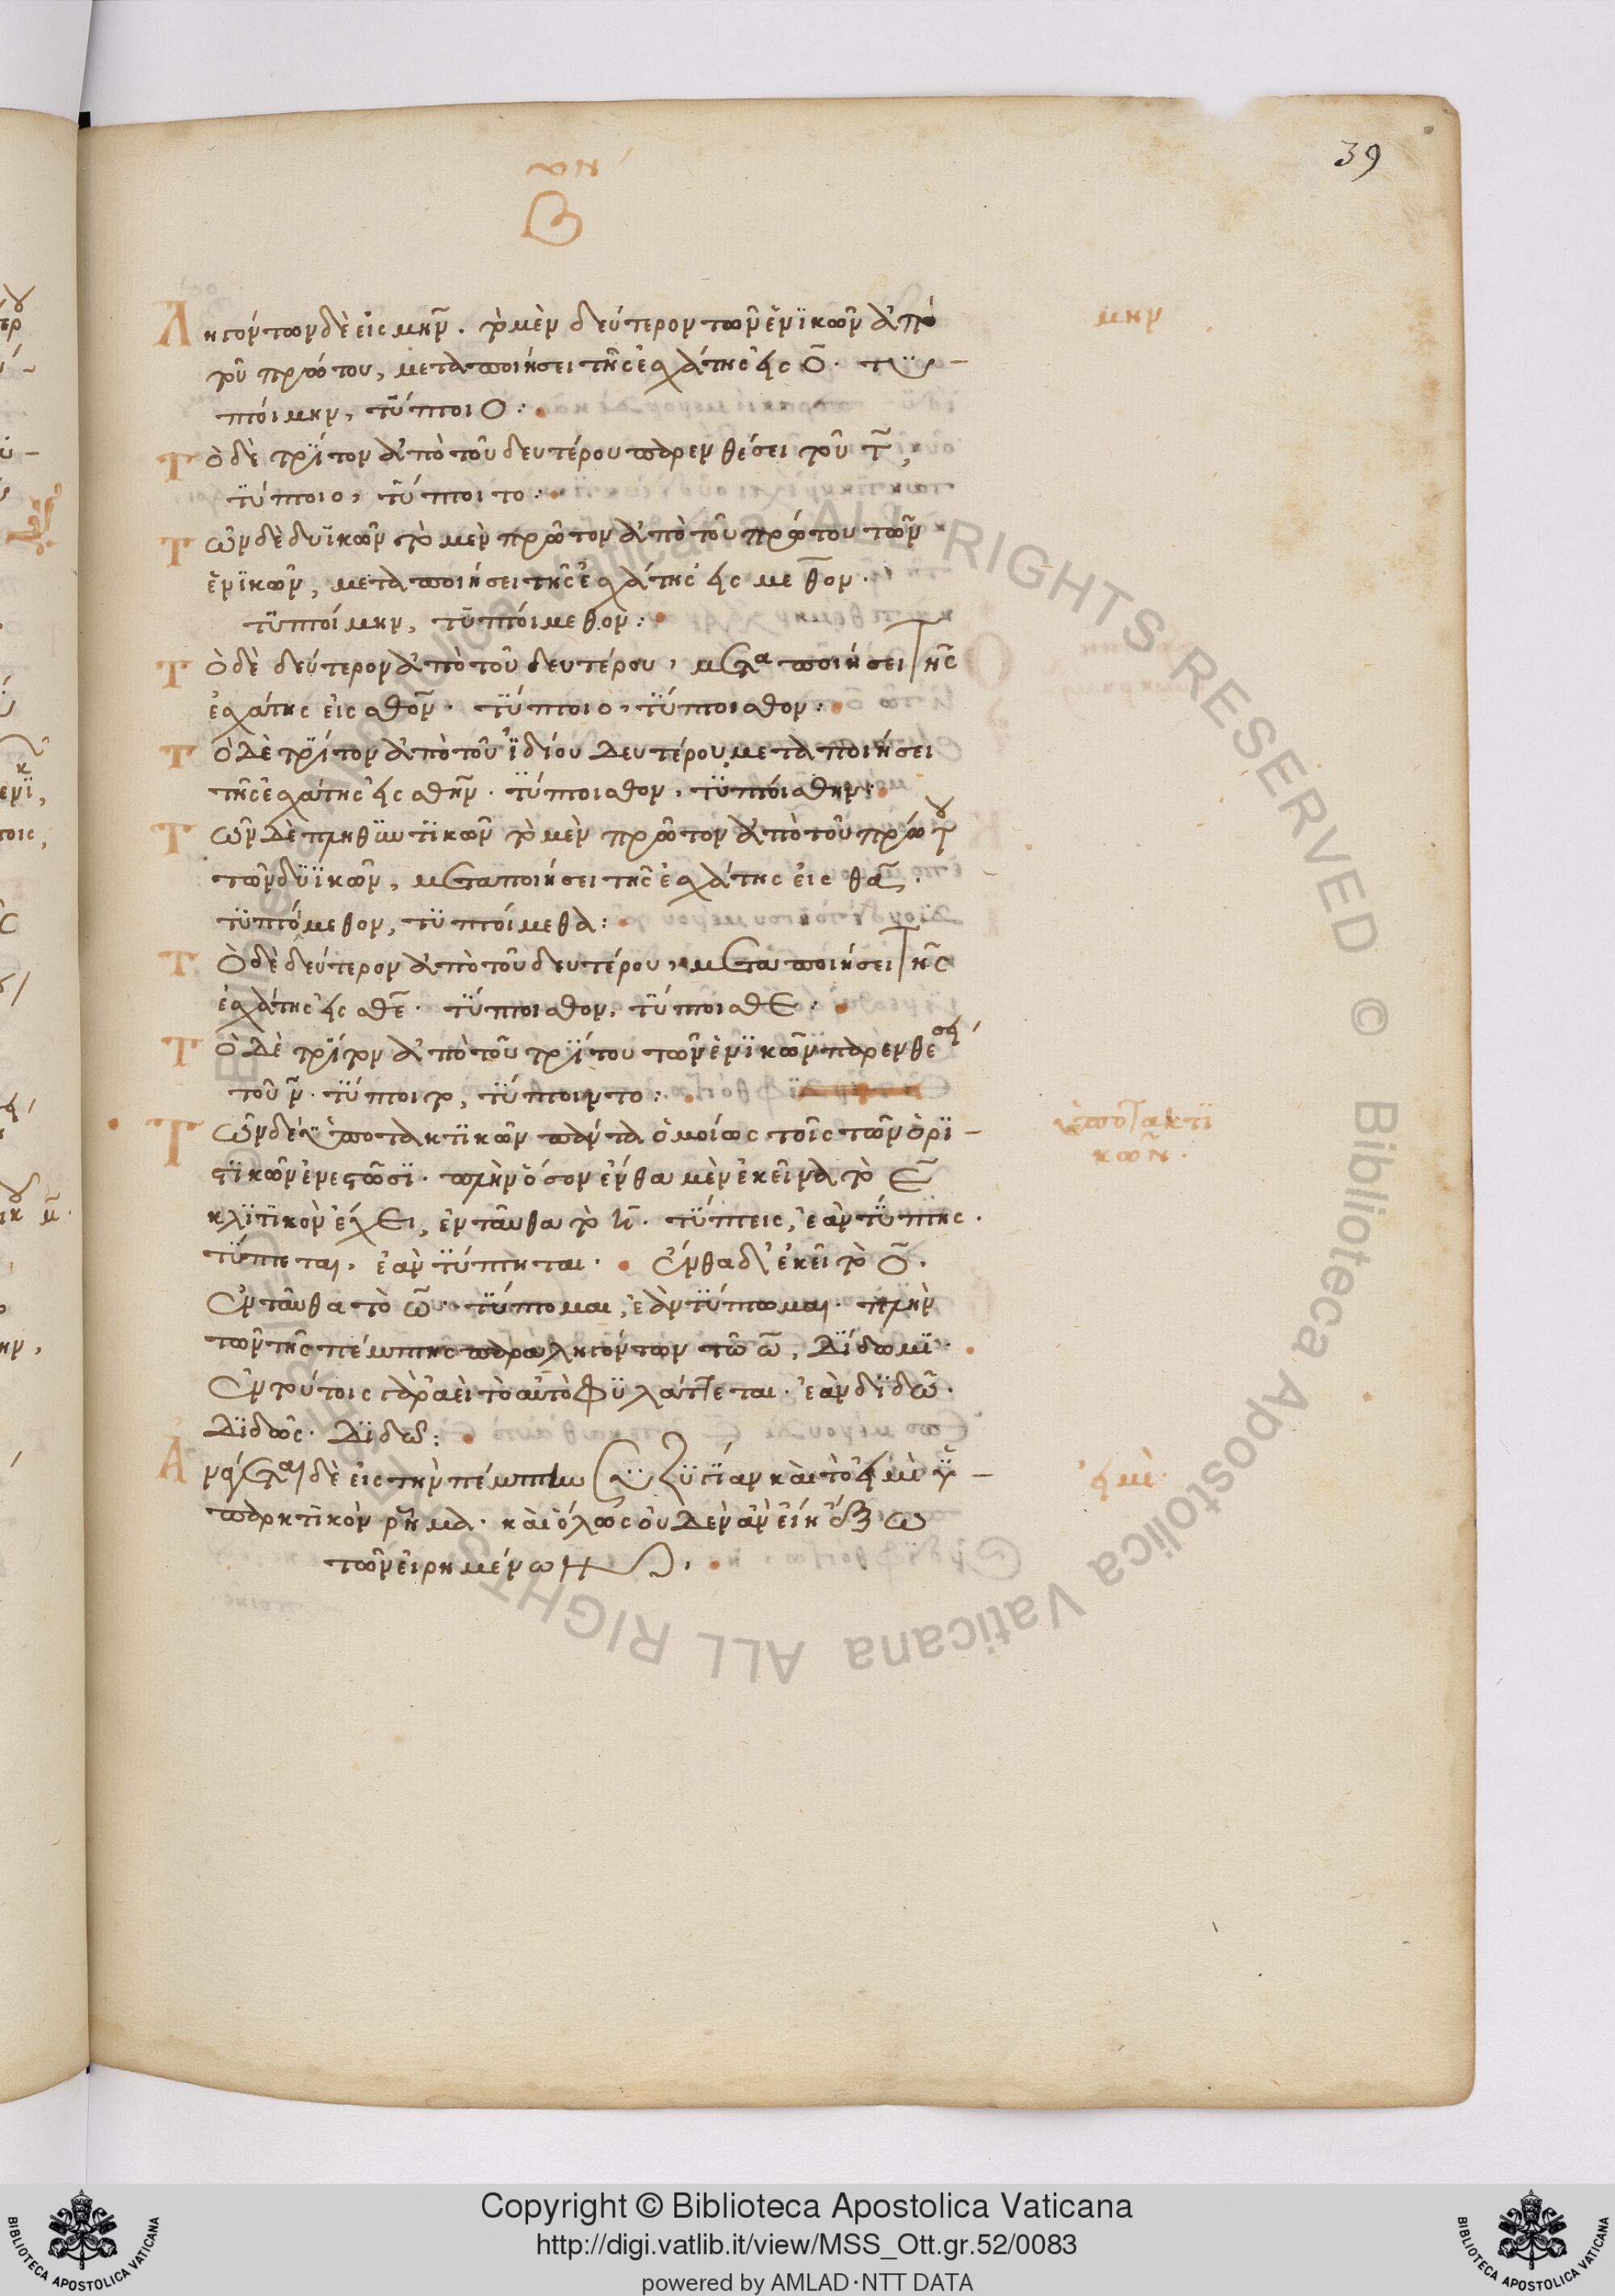 39
ον
Β
Ληγόντων δὲ εἰς μην. τὸ μὲν δεύτερον τῶν ἑνϊκῶν ἀπὸ
τοῦ πρώτου, μεταποιήσει τῆς ἐσχάτης εἰς ο. τϋ-
πτοίμην, τύπτοιο:
Τὸ δὲ τρίτον ἀπὸ τοῦ δευτέρου παρενθέσει τοῦ τ,
τύπτοιο, τύπτοιτο:
Τῶν δὲ δυϊκῶν τὸ μὲν πρῶτον ἀπὸ τοῦ πρώτου τῶν
ἑνϊκῶν, μεταποιήσει τῆς ἐσχάτης εἰς μεθον.
τϋπτοίμην, τϋπτοίμεθον:
Τὸ δὲ δεύτερον ἀπὸ τοῦ δευτέρου, μεταποιήσει τῆς
ἐσχάτης εἰς σθον. τύπτοιο, τύπτοισθον:
Τὸ δὲ τρίτον ἀπὸ τοῦ ἰδίου δευτέρου μεταποιήσει
τῆς ἐσχάτης εἰς σθην. τύπτοισθον, τϋπτοίσθην:
Τῶν δὲ πληθϋντϊκῶν τὸ μὲν πρῶτον ἀπὸ τοῦ πρώτου
τῶν δυϊκῶν, μεταποιήσει τῆς ἐσχάτης εἰς θα.
τϋπτόμεθον, τϋπτοίμεθα:
Τὸ δὲ δεύτερον ἀπὸ τοῦ δευτέρου, μεταποιήσει τῆς
ἐσχάτης εἰς σθε. τύπτοισθον, τύπτοισθε:
Τὸ δὲ τρίτον ἀπὸ τοῦ τρίτου τῶν ἑνϊκῶν παρενθέσει
τοῦ ν. τύπτοιτο, τύπτοιντο:
Τῶν δέ γε ὑποτακτϊκῶν πάντα ὁμοίως τοῖς τῶν ὁρϊ-
στϊκῶν ἐνεστῶσϊ. πλὴν ὅσον ἔνθα μὲν ἐκεῖνα τὸ ε
κλϊτϊκὸν ἔχει, ἐνταῦθα τὸ η. τύπτεις, ἐὰν τύπτης.
τύπτεται, ἐὰν τύπτηται. Ἔνθα δ' ἐκεῖ τὸ ο.
Ἐνταῦθα τὸ ω. τύπτομαι, ἐὰν τύπτωμαι. πλὴν
τῶν τῆς πέμπτης παραληγόντων τῶ ω, δίδωμϊ.
Ἐν τούτοις γὰρ ἀεὶ τὸ αὐτὸ φϋλάττεται. ἐὰν δϊδῶ.
δϊδῶς. δϊδῶ:
Ἀνάγεται δὲ εἰς τὴν πέμπτην συζϋγίαν καὶ τὸ εἰμὶ ὑ-
παρκτϊκὸν ῥῆμα. καὶ ὅλως οὐδὲν ἂν εἴη ἔξω
τῶν εἰρημένων.
μην
ὑποτακτϊ
κῶν.
εἰμὶ
Copyright © Biblioteca Apostolica Vaticana
http://digi.vatlib.it/view/MSS_Ott.gr.52/0083
powered by AMLAD·NTT DATA